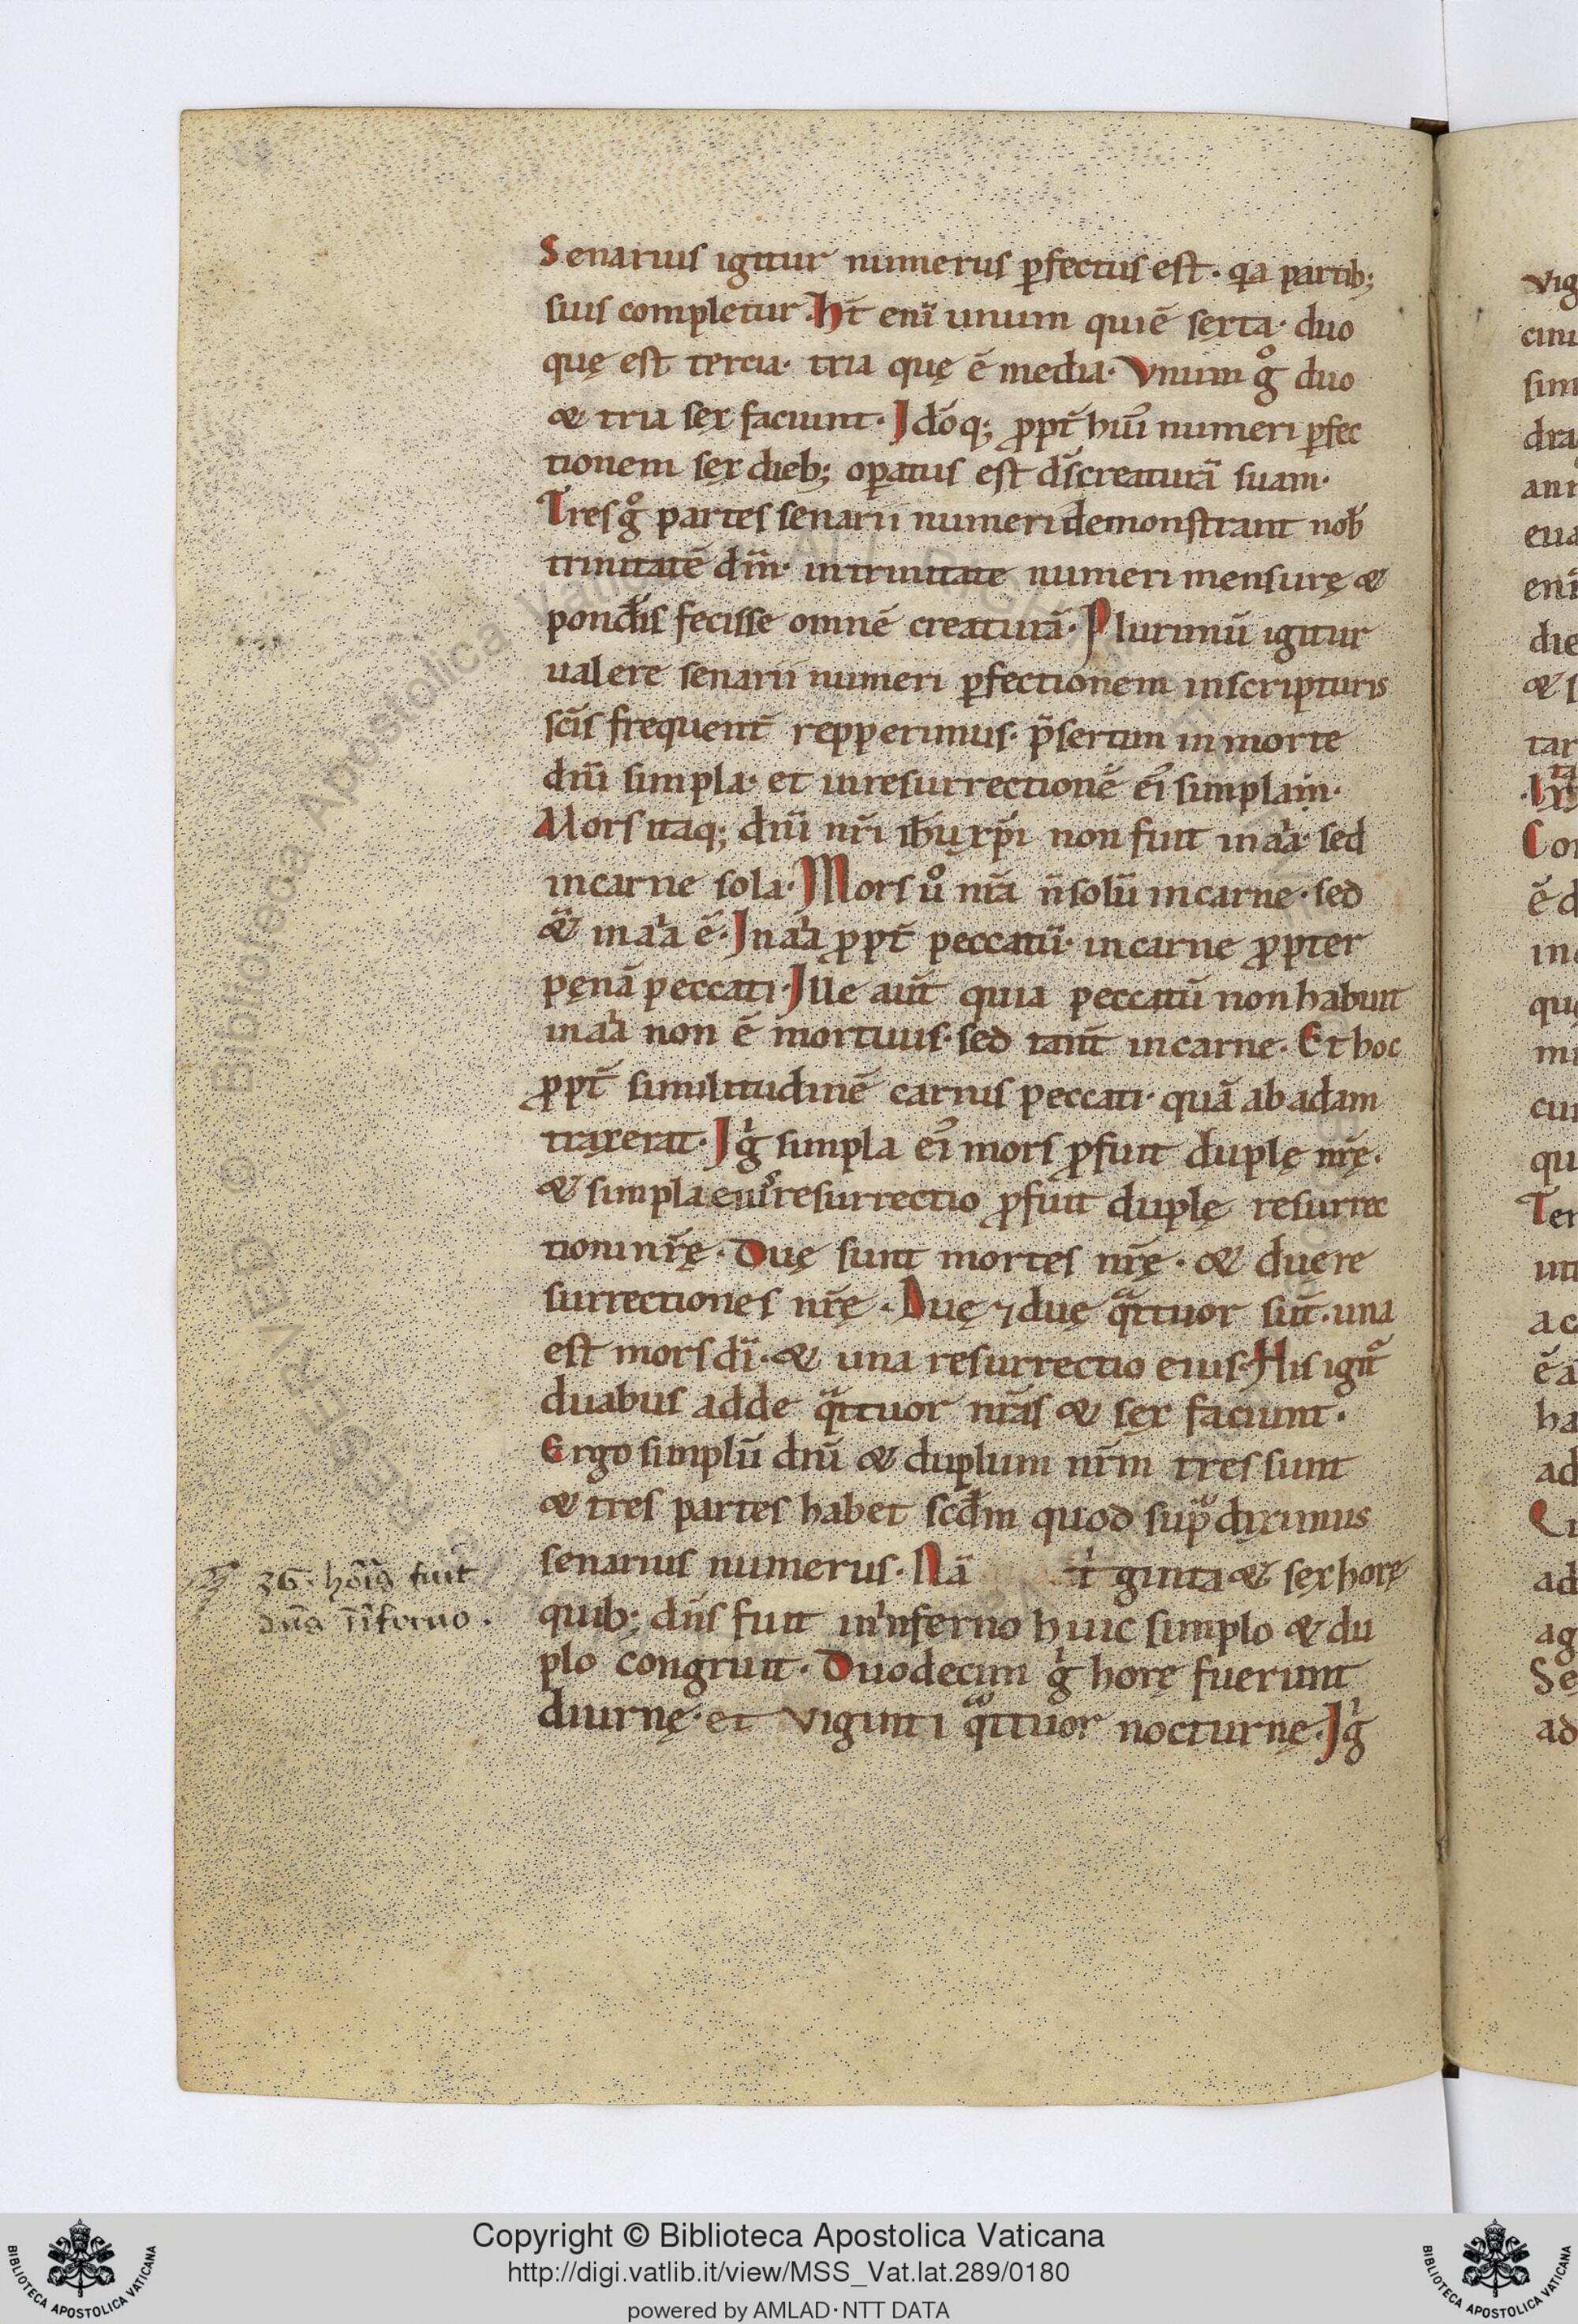 Senarius igitur numerus ꝑfectus est· qͣa partib;
suis completur· Ht̄ eni̅ unum qui ē sexta· duo
quę est tercia· tria quę ē media· Vnum gͦ duo
& tria sex faciunt· Ido̅q; ꝓpt̄ hui᾽ numeri ꝑfec
tionem sex dieb; oꝑatus est d̅s creaturā suam·
Tres gͦ partes senarii numeri demonstrant nob̄
trinitatē dm̅· in trinitate numeri mensurę &
pond̅is fecisse omnē creaturā· Plurimū igitur
ualere senarii numeri ꝑfectionem in scripturis
sc̅is frequent̄ repperimus· p̄sertim in morte
dn̅i simpla· et in resurrectionē ei᾽ simplam·
Mors itaq; dn̅i nr̅i ih̅u xp̅i non fuit in aı̅a· sed
in carne sola· Mors uͦ nr̅a n̅ solū in carne· sed
&̅ in aı̅a ē· In aı̅a ꝓpt̄ peccatū· in carne ꝓpter
pęnā peccati· Ille aut̄ quia peccatū non habuit
in aı̅a non ē mortuus· sed tant̄ in carne· Et hoc
ꝓpt̄ similitudinē carnis peccati· quā ab adam
traxerat· Igͥ simpla ei᾽ mors ꝓfuit duplę nr̅ę·
& simpla eius resurrectio ꝓfuit duplę resurrec
tioni nr̅ę· Duę sunt mortes nr̅ę· & duę re
surrectiones nr̅ę· Duę ⁊ duę qͣttuor sūt· una
est mors dı̅· & una resurrectio eius· His igit᷑
duabus adde qͣttuor nr̅as & sex faciunt·
Ergo simplū dn̅i & duplum nr̅m tres sunt
& tres partes habet scd̅m quod sup̲ͣ diximus
senarius numerus· Nā tͥginta & sex horę
quib; dn̅s fuit in inferno huic simplo & du
plo congruit· Duodecim gͥ horę fuerunt
diurnę· et viginti qͣttuor nocturnę· Igͥ
36· hōris fuit
dn̅s ı̅ ı̅ferno·
Copyright © Biblioteca Apostolica Vaticana
http://digi.vatlib.it/view/MSS_Vat.lat.289/0180
powered by AMLAD·NTT DATA